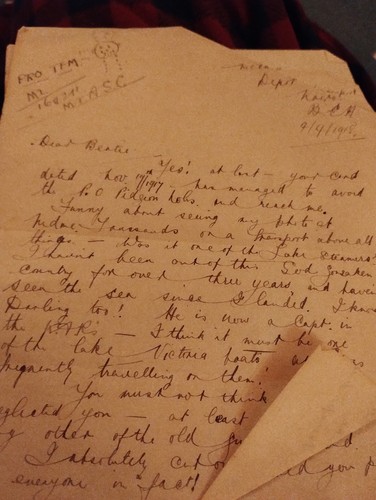 Depot
9/4/1918.
M.T. A.S.C.
Dear Beatie
Yes! at last – your card
dated Nov. 19th 1917 – has managed to avoid
the P.O Pidgeon holes. and reach me.
Funny about seeing my photo at
on a transport above all
things. – Was it one of the Lake Steamers?
I havent been out of this God forsaken
country for over three years, and haven't
seen the sea since I landed. I know
Darling too! He is now a Capt. in
the K.A.R's – I think it must be one
of the Lake Victoria boats –
frequently travelling on them!
You must not think
neglected you – at least
other of the old
I absolutely cut
everyone in fact!